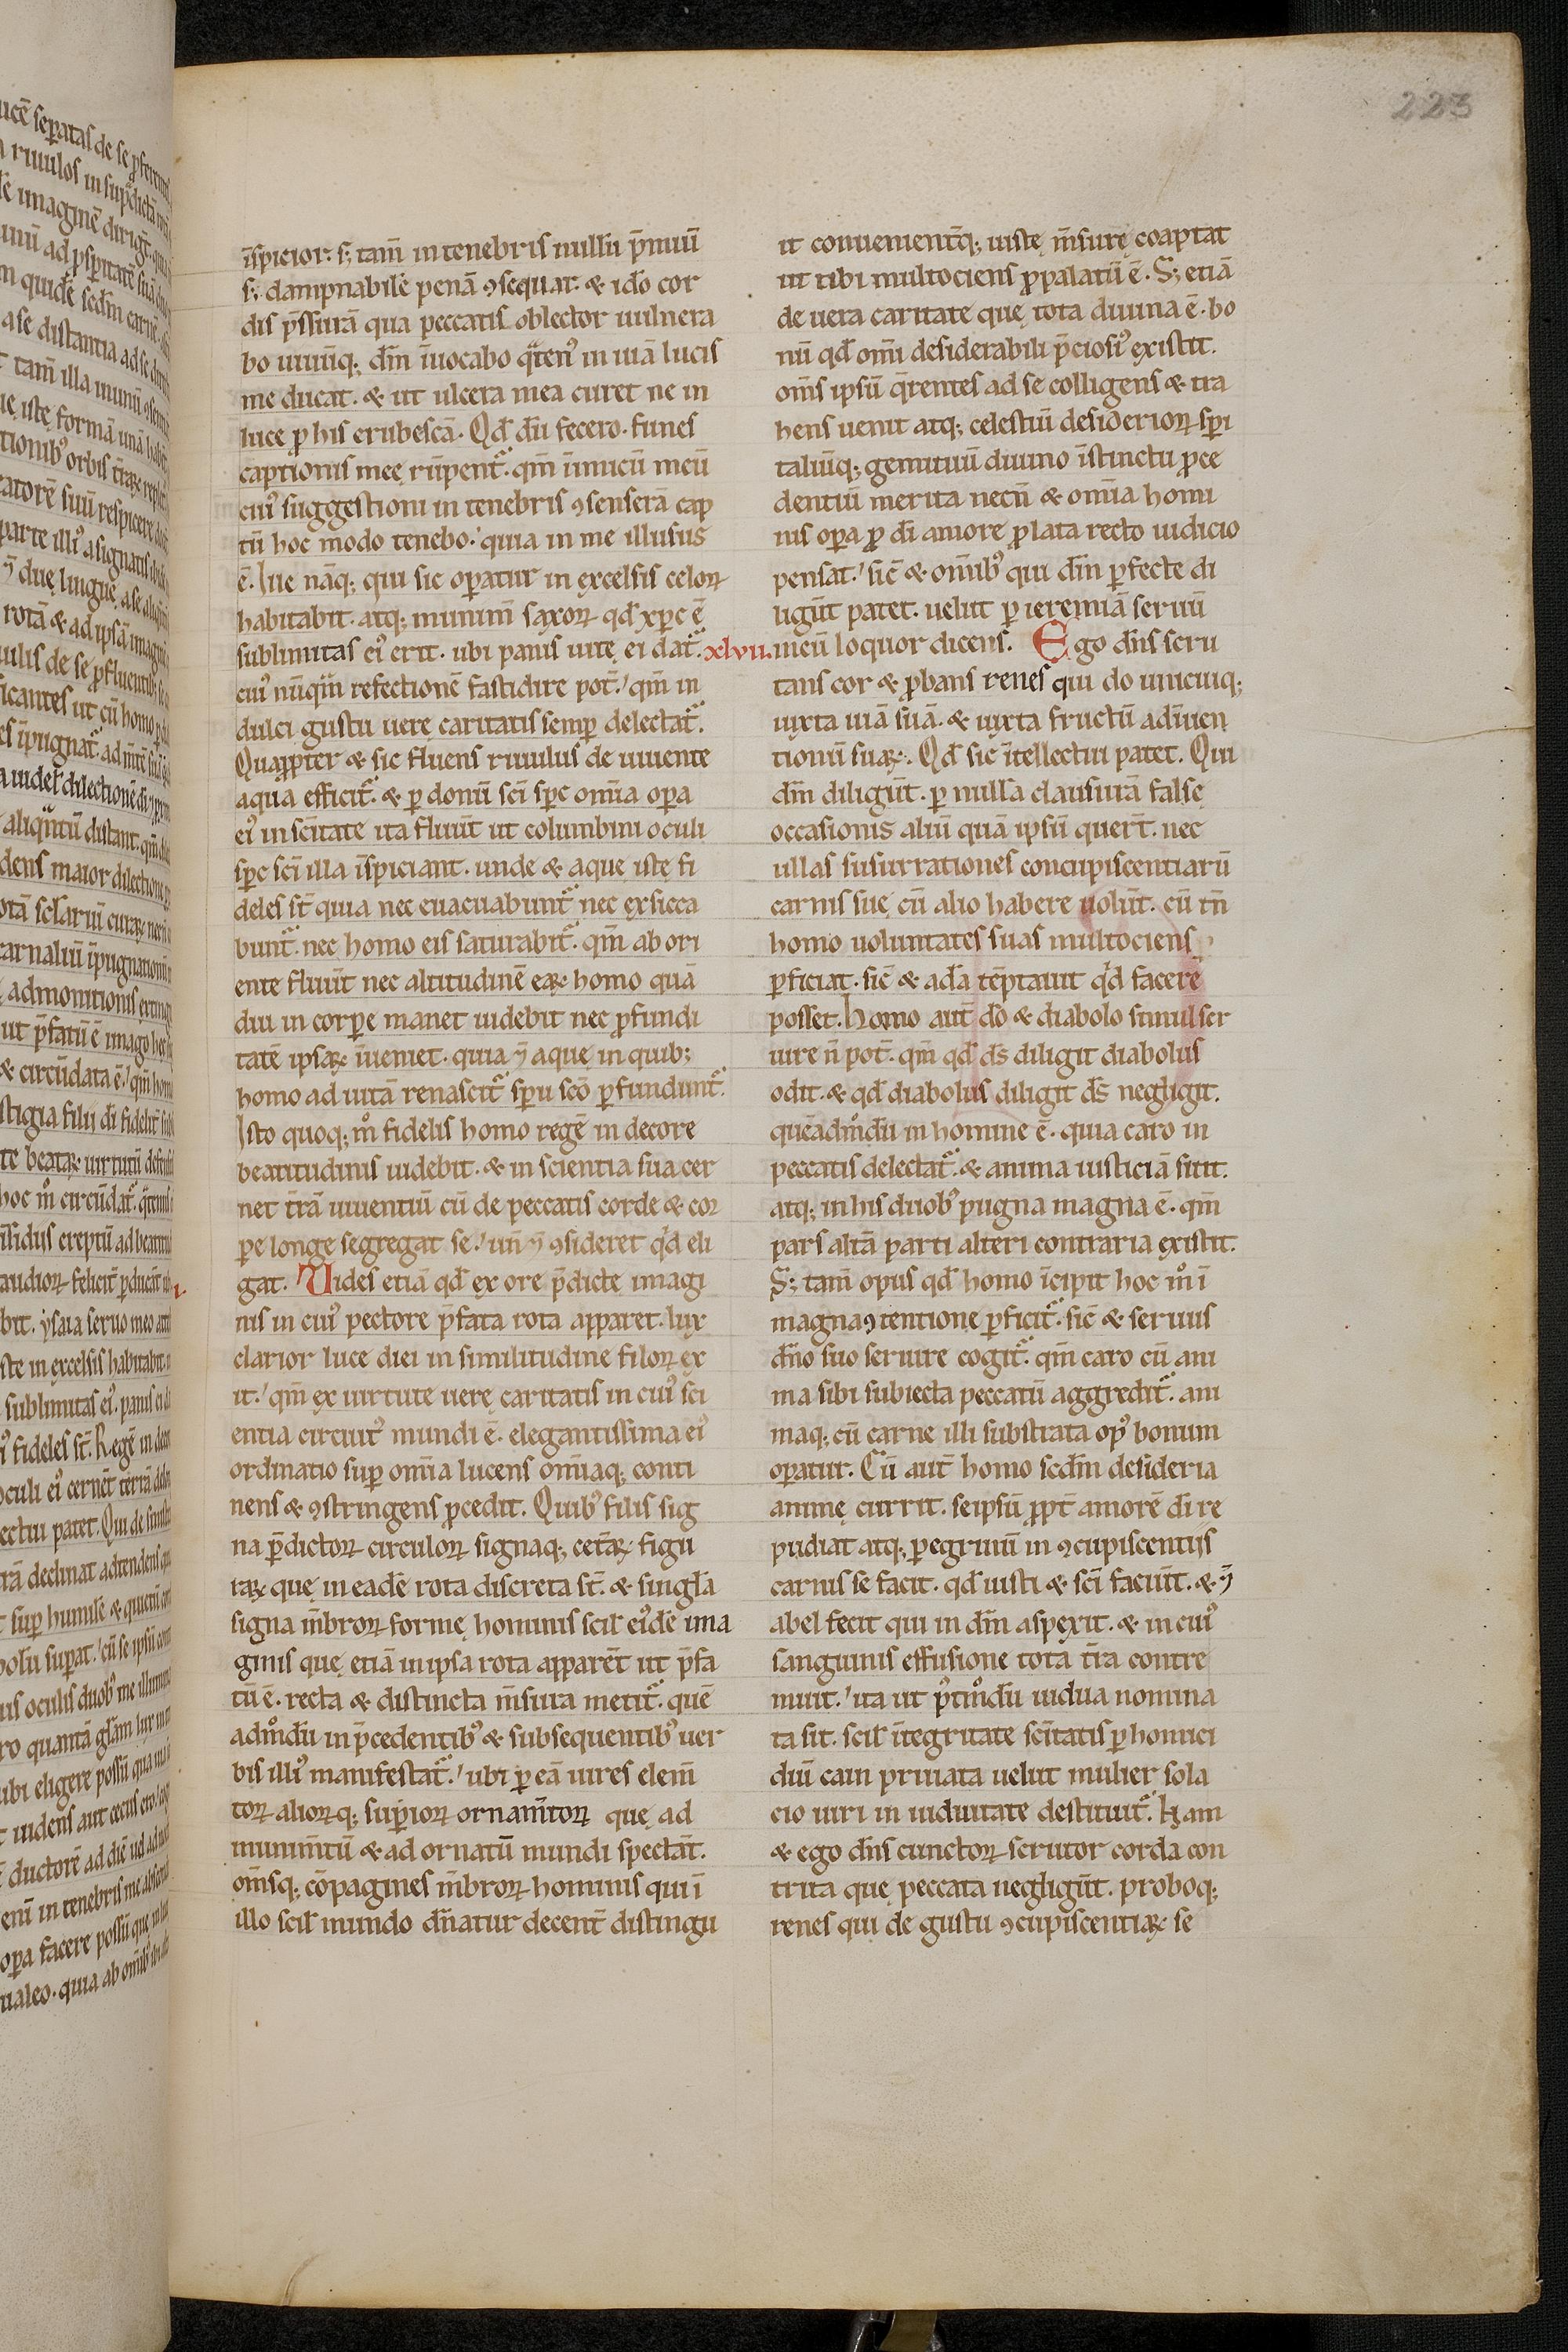 223
īspicior. s; tam̄ in tenebris nullū p̄miū
s; dampnabilē penā ꝯsequar. & idō cor
dis p̄ssurā qua peccatis oblector uulnera
bo uiuūq; dm̄ īuocabo qͣten᾽ in uiā lucis
me ducat. & ut ulcera mea curet ne in
luce ꝓ his erubescā. Qd̄ dū fecero. funes
captionis meę rūpent᷑. qm̄ inimicū meū
cui᾽ suggestioni in tenebris ꝯsenserā cap
tū hoc modo tenebo. quia in me illusus
ē. Iste nāq; qui sic oꝑatur in excelsis celoꝝ
habitabit. atq; munim̄ saxoꝝ qd̄ xp̄c ē
sublimitas ei᾽ erit. ubi panis uitę ei dat᷑.
cui᾽ nūqͣm refectionē fastidire pot̄. qm̄ in
dulci gustu uerę caritatis semꝑ delectat᷑.
Quapp̄ter & sic fluens riuulus de uiuente
aqua efficit᷑. & ꝑ donū sc̄i sp̄c om̄ia oꝑa
ei᾽ in sc̄itate ita fluūt ut columbini oculi
sp̄c sc̄i illa īspiciant. unde & aquę istę fi
deles st̄ quia nec euacuabunt᷑ nec exsicca
bunt᷑. nec homo eis saturabit᷑. qm̄ ab ori
ente fluūt nec altitudinē eaꝝ homo quā
diu in corꝑe manet uidebit nec ꝓfundi
tatē ipsaꝝ īueniet. quia ē aquę in quib;
homo ad uitā renascit᷑ sp̄u sc̄o ꝑfundunt᷑.
Isto quoq; mͦ fidelis homo regē in decore
beatitudinis uidebit. & in scientia sua cer
net t̄rā uiuentiū cū de peccatis corde & cor
ꝑe longe segregat se. un̄ ꝯsideret qͥd eli
gat. Uides etiā qd̄ ex ore p̄dictę imagi
nis in cui᾽ pectore p̄fata rota apparet. lux
clarior luce diei in similitudine filoꝝ ex
it. qm̄ ex uirtute uerę caritatis in cui᾽ sci
entia circuit᾽ mundi ē. elegantissima ei᾽
ordinatio suꝑ om̄ia lucens om̄iaq; conti
nens & ꝯstringens ꝓcedit. Quib᾽ filis sig
na p̄dictoꝝ circuloꝝ signaq; cet̄aꝝ figu
raꝝ quę in eadē rota discreta st̄. & singl̄a
signa m̄broꝝ formę hominis scil᷑ ei᾽dē ima
ginis quę etiā in ipsa rota apparēt ut p̄fa
tū ē. recta & distincta m̄sura metit᷑. quē
admͦdū in p̄cedentib᾽ & subsequentib᾽ uer
bis illi᾽ manifestat᷑. ubi ꝑ eā uires elem̄
toꝝ alioꝝq; suꝑioꝝ ornam̄toꝝ quę ad
munim̄tū & ad ornatū mundi spectāt.
om̄sq; cōpagines m̄broꝝ hominis qui ī
illo scil᷑ mundo dn̄atur decent̄ distingu
it conuenient̄q; iustę m̄surę coaptat
ut tibi multociens ꝓpalatū ē. S; etiā
de uera caritate quę tota diuina ē. bo
nū qd̄ om̄i desiderabili p̄ciosi᾽ existit.
om̄s ipsū q̄rentes ad se colligens & tra
hens uenit atq; celestiū desideriorꝝ spi
taliūq; gemituū diuino īstinctu ꝓce
dentiū merita necn̄ & om̄ia homi
nis oꝑa ꝓ dī amore ꝓlata recto iudicio
pensat. sic̄ & om̄ib᾽ qui dm̄ ꝑfecte di
ligūt patet. uelut ꝑ ieremiā seruū
xlvii. meū loquor dicens. Ego dn̄s scru
tans cor & ꝓbans renes qui do unicuiq;
iuxta uiā suā. & iuxta fructū adīuen
tionū suaꝝ. Qd̄ sic ītellectui patet. Qui
dm̄ diligūt. ꝑ nulla clausurā falsę
occasionis aliū quā ipsū querūt. nec
ullas susurrationes concupiscentiarū
carnis suę cū alio habere uolūt. cū tn̄
homo uoluntates suas multociens
ꝑficiat. sic̄ & adā tēptauit qͥd facere
posset. homo aut̄ dō & diabolo simul ser
uire n̄ pot̄. qm̄ qd̄ ds̄ diligit diabolus
odit. & qd̄ diabolus diligit ds̄ negligit.
quēadmͦdū in homine ē. quia caro in
peccatis delectat᷑. & anima iusticiā sitit.
atq; in his duob᾽ pugna magna ē. qm̄
pars altā parti alteri contraria existit.
S; tam̄ opus qd̄ homo īcipit hoc mͦ ī
magna ꝯtentione ꝑficit᷑. sic̄ & seruus
dn̄o suo seruire cogit᷑. qm̄ caro cū ani
ma sibi subiecta peccatū aggredit᷑. ani
maq; cū carne illi substrata op᾽ bonum
oꝑatur. Cū aut̄ homo scd̄m desideria
animę currit. seipsū ꝓpt̄ amorē dī re
pudiat atq; ꝑegrinū in ꝯcupiscentiis
carnis se facit. qd̄ iusti & sc̄i faciūt. &
abel fecit qui in dm̄ aspexit. & in cui᾽
sanguinis effusione tota t̄ra contre
muit. ita ut pͥtmͦdū uidua nomina
ta sit. scil᷑ ītegritate sc̄itatis ꝑ homici
diū cain priuata uelut mulier sola
cio uiri in uiduitate destituit᷑. Nam
& ego dn̄s cunctoꝝ scrutor corda con
trita quę peccata negligūt. proboq;
renes qui de gustu ꝯcupiscentiaꝝ se